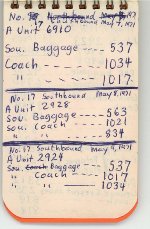 Southbound May 7, 1971
A Unit 6910
Sou. Baggage --- 537
Coach ---- 1034
" ---- 1017
No. 17 Southbound May 8, 1971
A Unit 2928
Sou. Baggage ---- 563
Sou. Coach ---- 1021
" " ---- 834
No. 17 Southbound May 9, 1971
A Unit 2924
Sou. Baggage --- 537
" Coach --- 1017
" " --- 1034